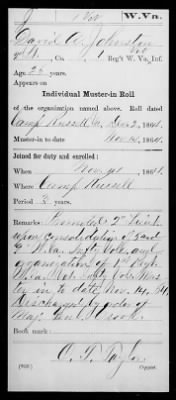 J 1 Vet W.Va.
David A. Johnston
2d Lt., Co. , Reg't W. Va. Inf.
Age 25 years
Appears on
Individual Muster-in Roll
of the organization named above. Roll dated
Camp Russell Va, Dec 2, 1864.
Muster-in to date Nov 14, 1864.
Joined for duty and enrolled:
When Nov 9, 1864.
Where Camp Russell
Period 3 years.
Remarks: Promoted 2d Lieut
upon consolidation of 5 and
9" W.Va. Infty Vols, and
organization of 1st Regt
W.Va. Vet. Infty Vols. Mus
ter in to date Nov. 14, 64.
Discharged by order of
Maj. Genl Crook.
Book mark:
O. T. Taylor
Copyist.